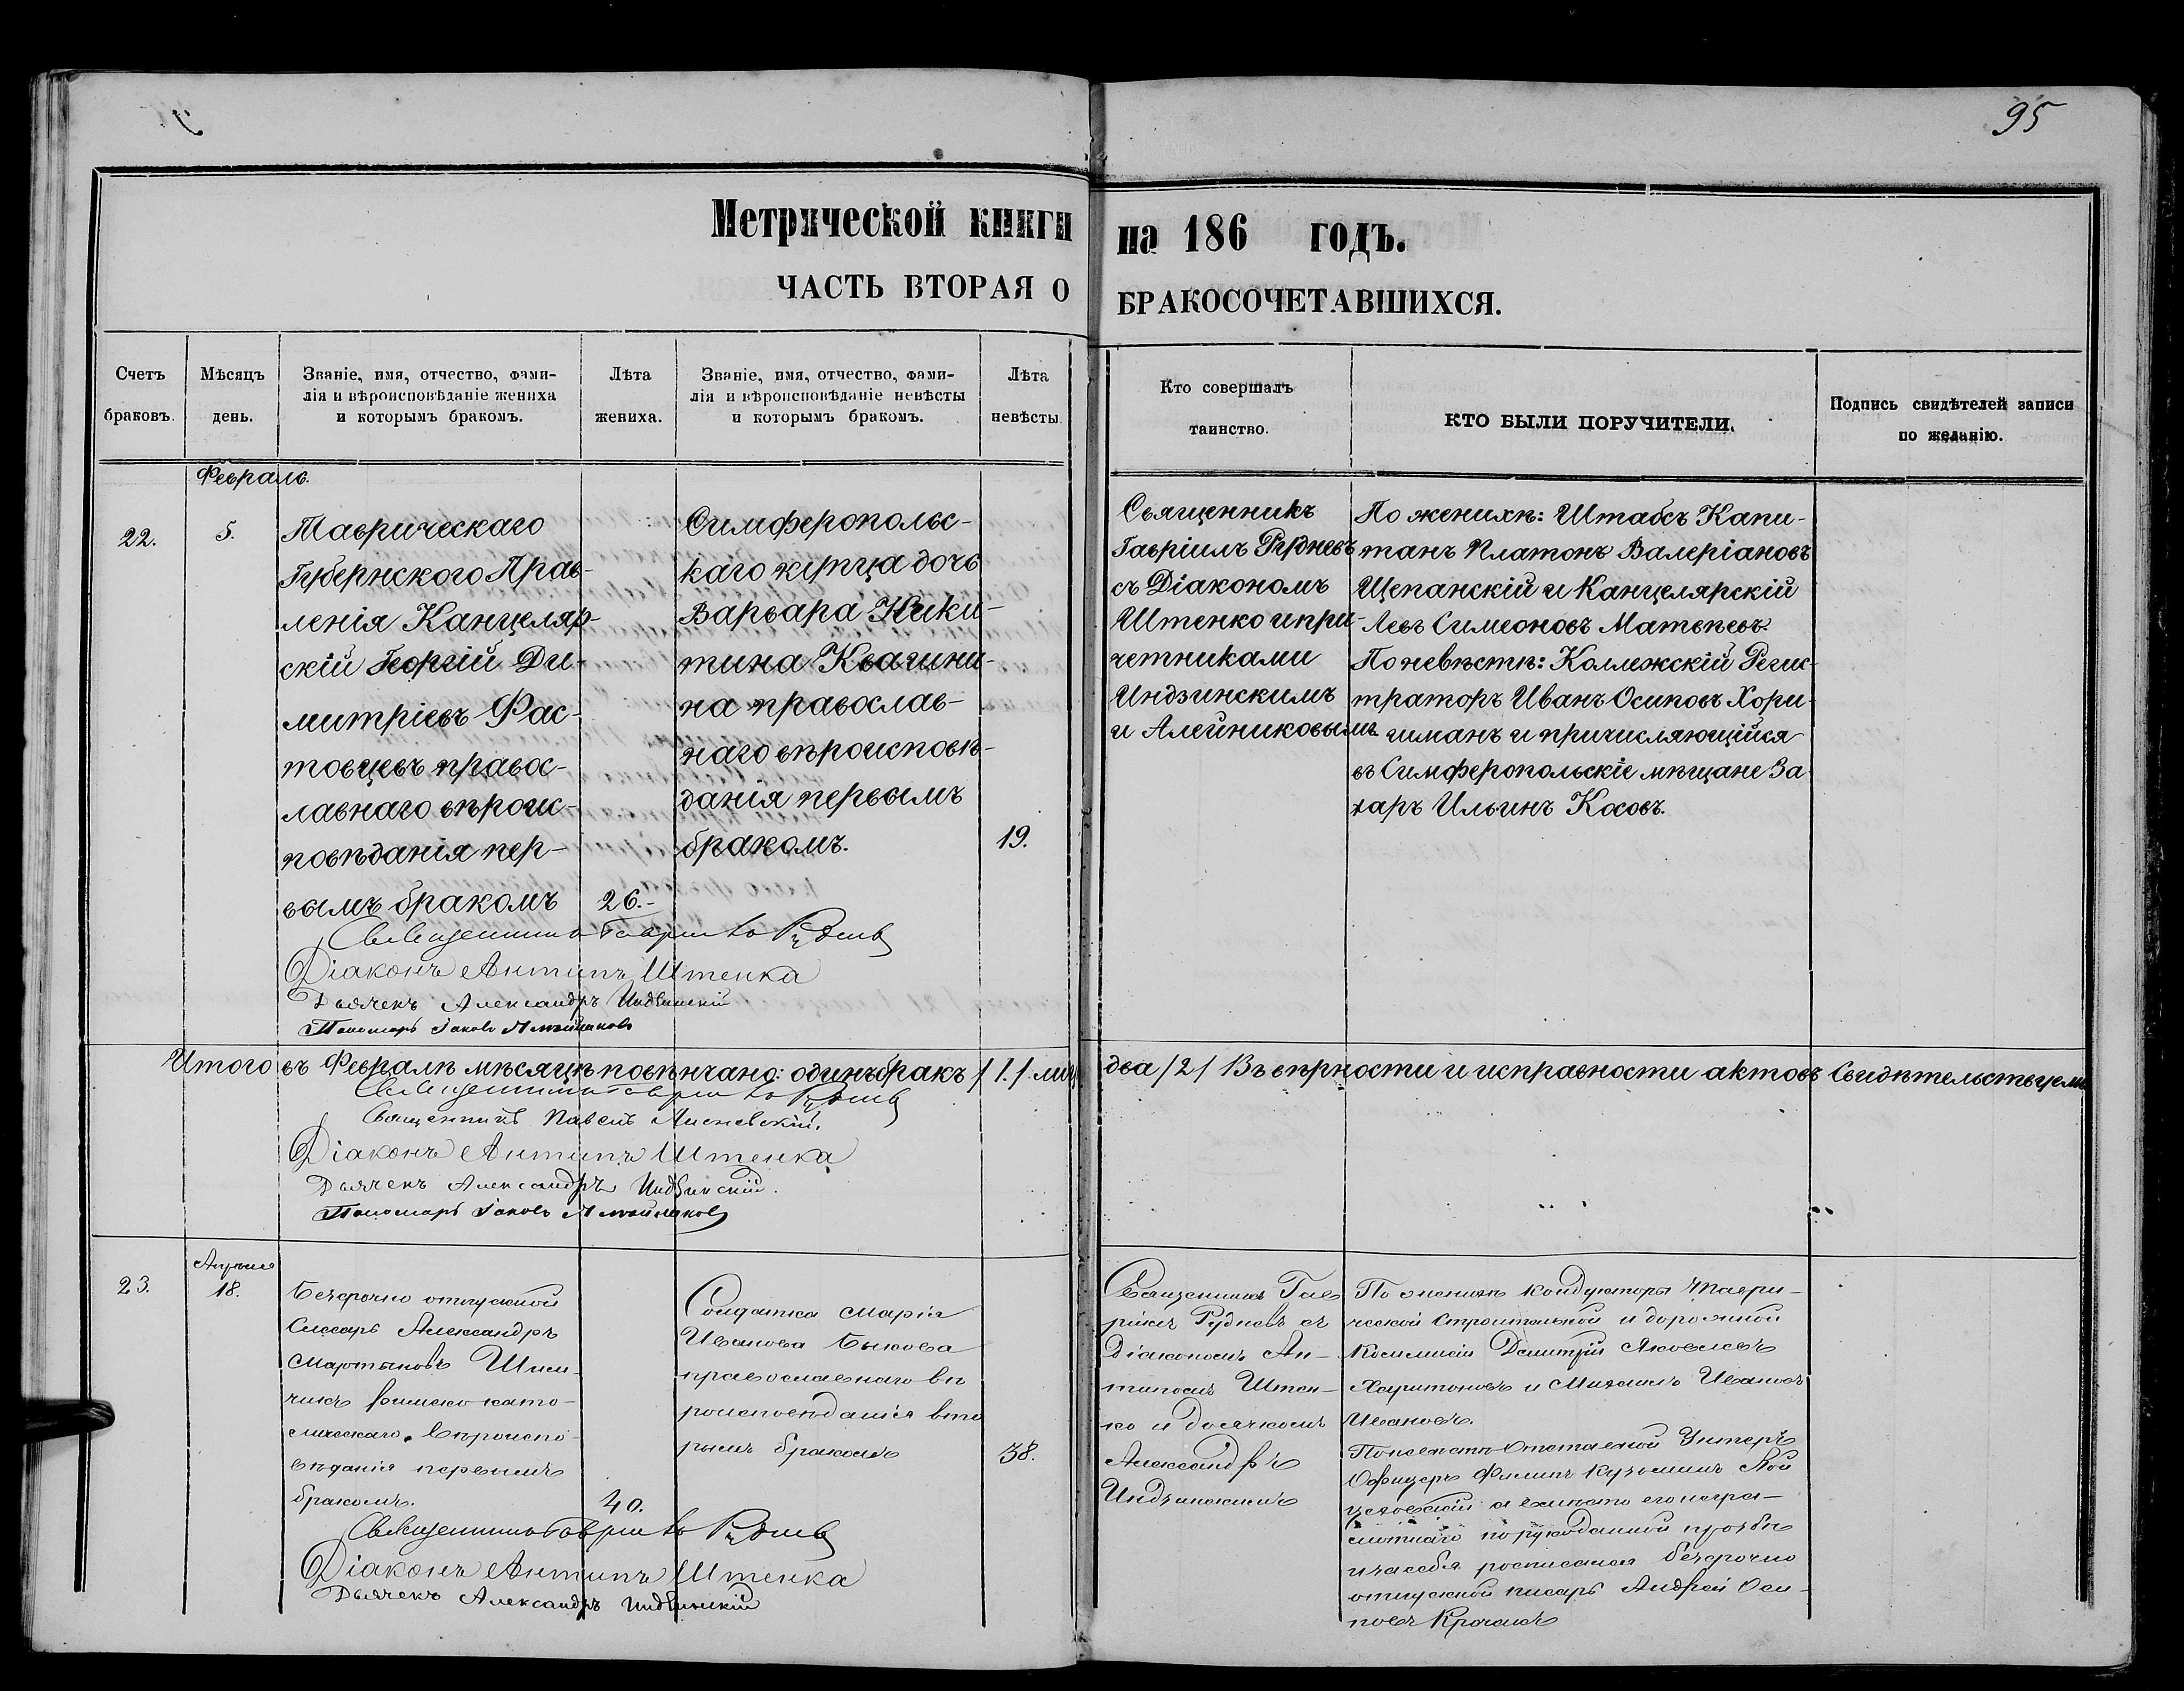 95
Метрической книги на 186 годъ.
ЧАСТЬ ВТОРАЯ О БРАКОСОЧЕТАВШИХСЯ.
Счетъ
браковъ.
Мѣсяцъ
день.
Званіе, имя, отчество, фами-
лія и вѣроисповѣданіе жениха
и которымъ бракомъ.
Лѣта
жениха.
Званіе, имя, отчество, фами-
лія и вѣроисповѣданіе невѣсты
и которымъ бракомъ.
Лѣта
невѣсты.
Кто совершалъ
таинство.
КТО БЫЛИ ПОРУЧИТЕЛИ.
Подпись свидѣтелей записи
по желанію.
Февраль.
22.
5.
Таврическаго
Губернского Прав-
ленія Канцеляр-
скій Георгій Ди-
митріевъ Фас-
товцевъ правос-
лавнаго вѣроис-
повѣданія пер-
вымъ бракомъ
26.-
Симферопольс-
каго купца дочь
Варвара Ники-
тина Квашни-
на православ-
наго вѣроисповѣ-
данія первымъ
бракомъ.
19.
Священникъ
Гавріилъ Рудневъ
съ Діакономъ
Штенко и при-
четниками
Индзинскимъ
и Алейниковымъ
По женихѣ: Штабсъ Капи-
танъ Платонъ Валеріановъ
Щепанскій и Канцелярскій
Левъ Симеоновъ Матвѣевъ.
По невѣстѣ: Коллежскій Регис-
траторъ Иванъ Осиповъ Хори-
шманъ и причисляющійся
въ Симферопольскіе мѣщане За-
харъ Ильинъ Косовъ.
Священникъ Гавріилъ Рудневъ
Діаконъ Антипъ Штенка
Дьячекъ Александръ Индзинскій
Пономарь Іаковъ Алейниковъ
Итого въ Февралѣ мѣсяцѣ повѣнчано: одинъ бракъ /1./ лиц два /2/ Въ вѣрности и исправности актовъ Свидѣтельствуемъ
Священникъ Гавріилъ Рудневъ
Священникъ Павелъ
Діаконъ Антипъ Штенка
Дьячекъ Александръ Индзинскій.
Пономарь Іаковъ Алейниковъ
23.
Апрѣля
18.
Безсрочно отпускной
Слесарь Александръ
Мартыновъ
чикъ Римско като-
лическаго Вѣроиспо-
вѣданія первымъ
бракомъ.
40.
Солдатка Марія
Иванова Быкова
православнаго вѣ
роисповѣданія вто
рымъ бракомъ
38.
Священникъ Гав
ріилъ Рудневъ съ
Діакономъ Ан-
типомъ Штен-
ко и дьячкомъ
Александръ
Индзинскимъ
По женихѣ кондукторы Таври-
ческой Строительной и дорожной
Коммисіи Дмитрій Яковлевъ
Харитоновъ и Михаилъ Ивановъ
Ивановъ.
По невѣстѣ Отставной Унтеръ
Офицеръ Филипъ Кузьминъ
его негра-
мотнаго по рукоданной прозьбѣ
и за себя росписался безсрочно
отпускной писарь Андрей Оси-
повъ